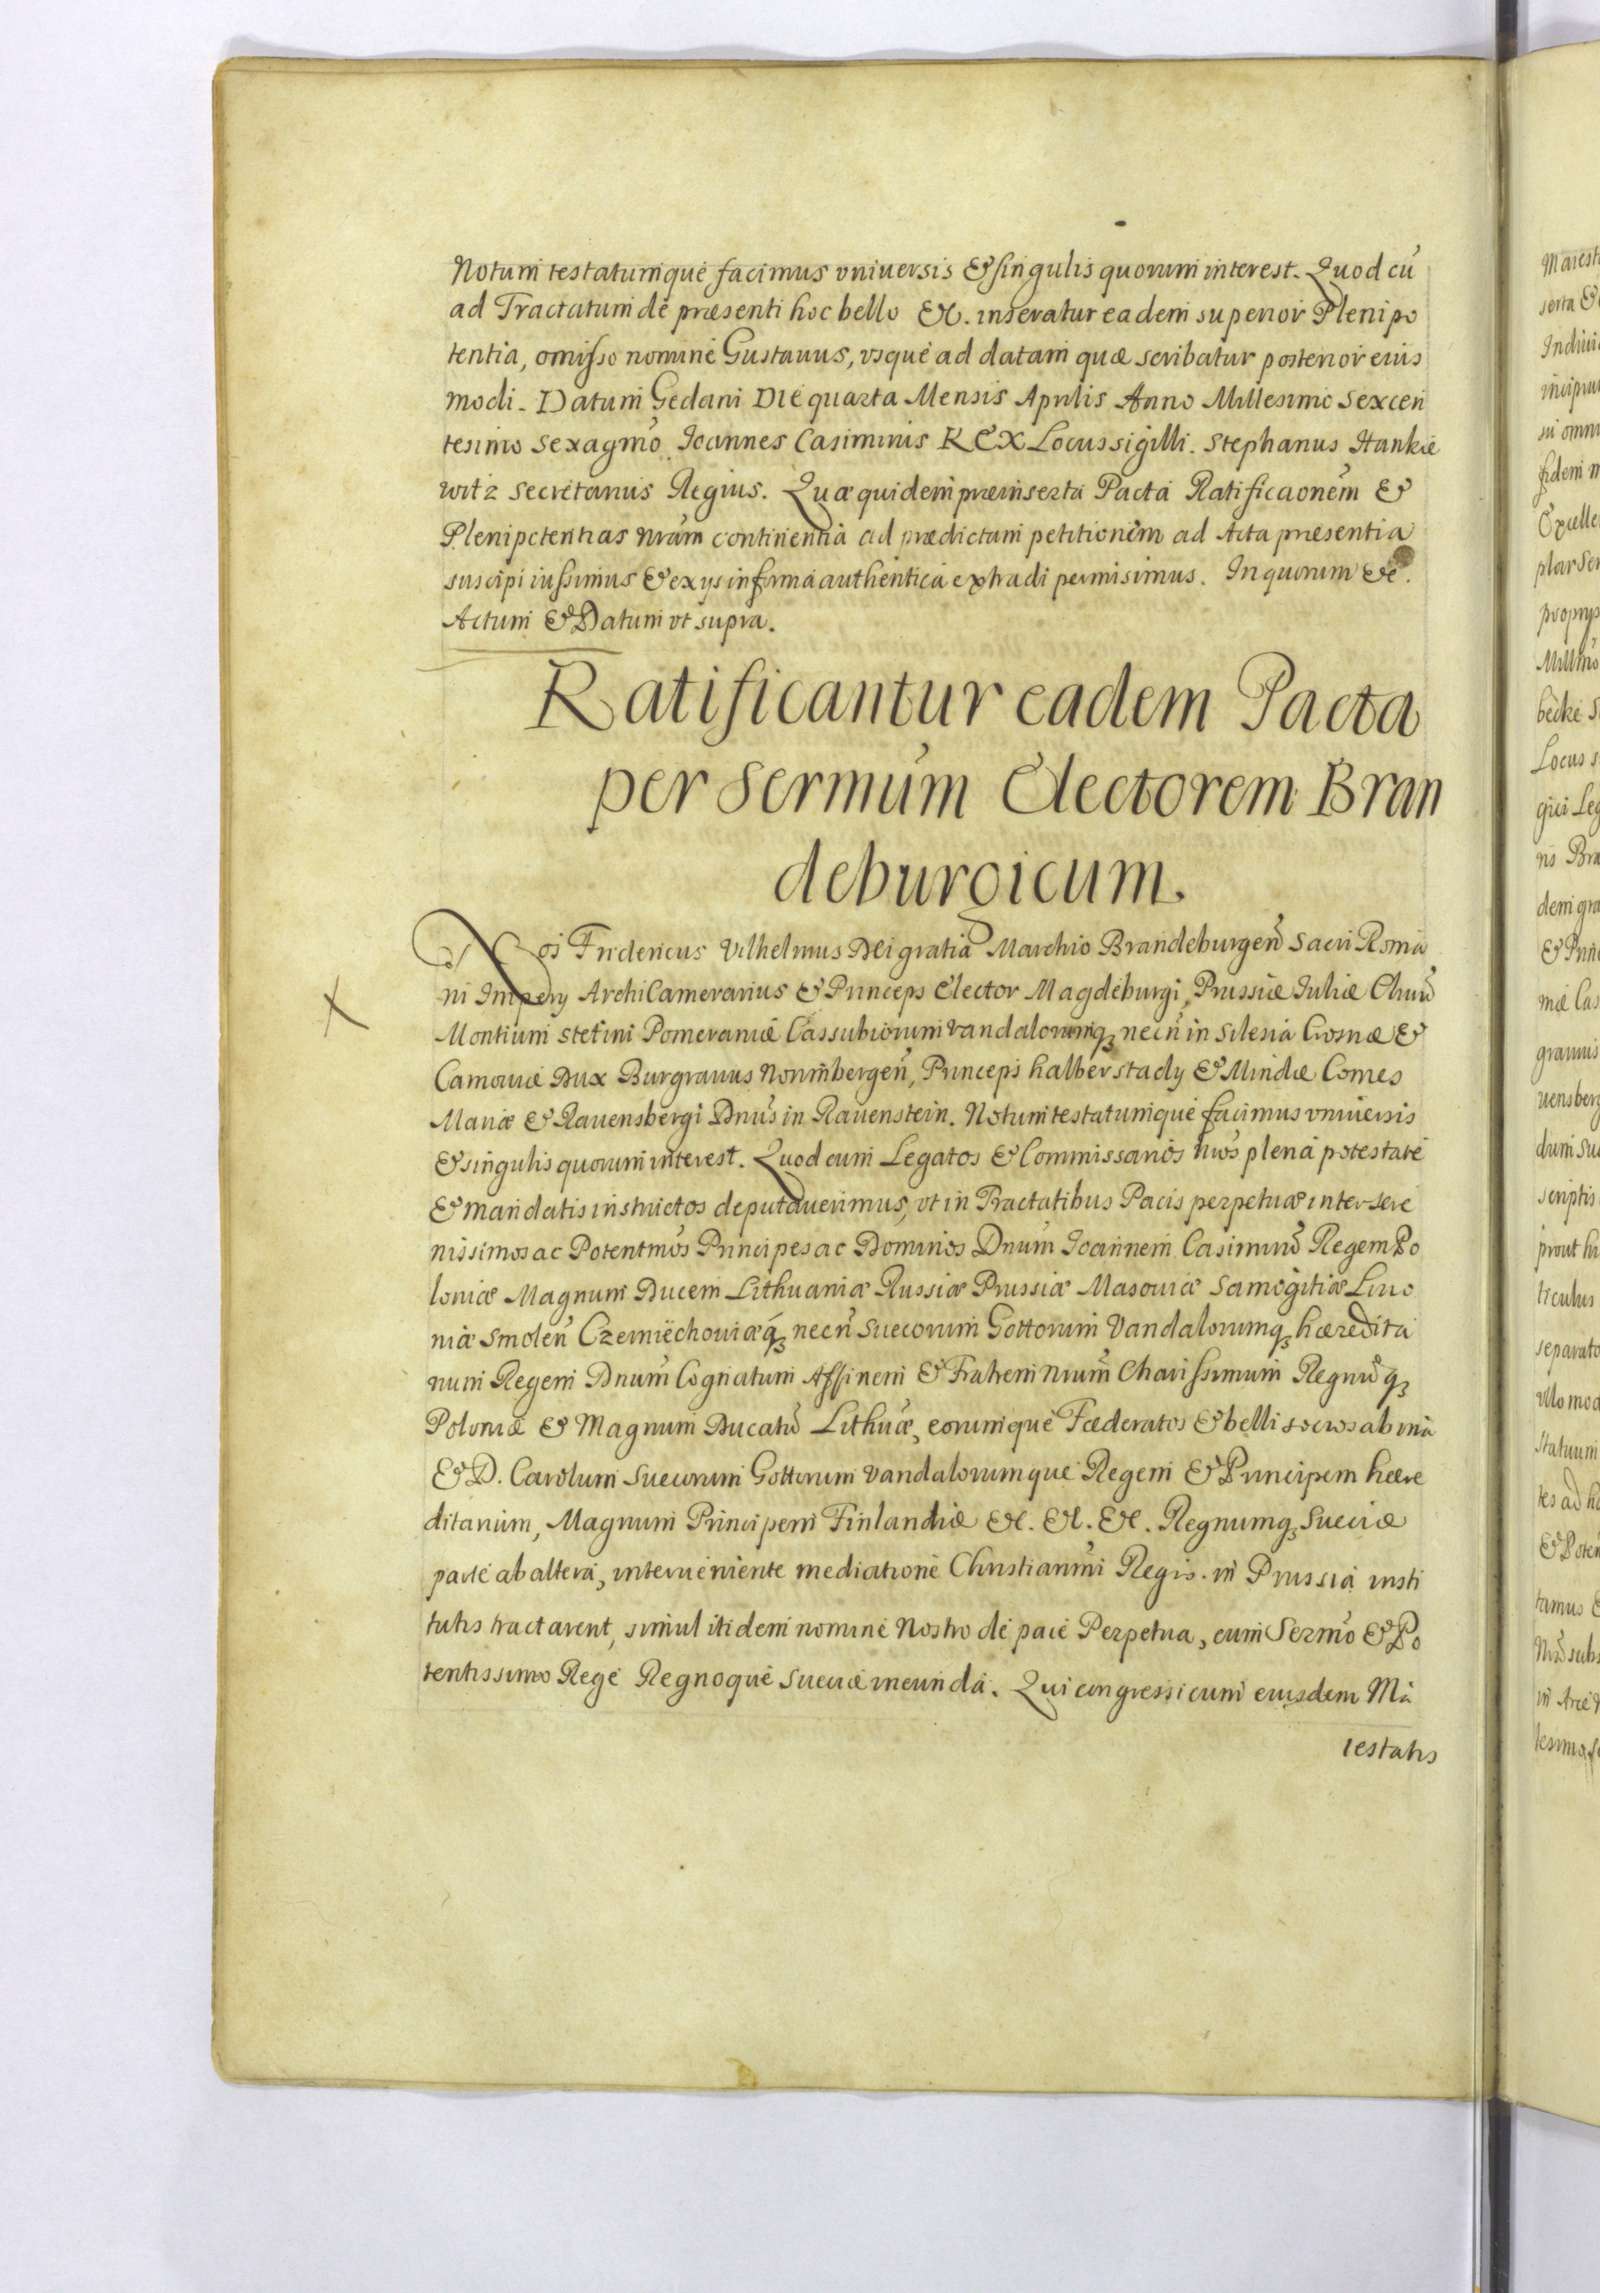 Notum testatumque facimus vniuersis & singulis quorum interest. Quod cũ
ad Tractatum de præsenti hoc bello &c. inseratur eadem superior Plenipo
tentia, omisso nomine Gustauus, vsque ad datam quæ scribatur posterior eius
modi. Datum Gedani DIE quarta Mensis Aprilis Anno Millesimo Sexcen
tesimo Sexagmõ Ioannes Casimirus REX Locus sigilli. Stephanus Hankie
witz Secretarius Regius. Quæ quidem præinserta Pacta Ratificaonẽm &
Plenipotentias nrãm continentia ad prædictam petitionem ad Acta præsentia
suscipi iussimus & ex ijs in forma authentica extradi permisimus. In quorum &c.
Actum & Datum vt supra.
Ratificantur eadem Pacta
per Sermũm Electorem Bran
deburgicum.
Nos Fridericus Vilhelmus DEi gratia Marchio Brandeburgeñ Sacri Roma
ni Imperij ArchiCamerarius & Princeps Elector Magdeburgi, Prussiæ Iuliæ Cliuiæ
Montium Stetini Pomeraniæ Cassubiorum Vandalorumq, necñ in Silesia Crosnæ &
Carnouiæ Dux Burgrauus Norimbergeñ, Princeps halberstadij & Mindæ Comes
Mariæ & Rauensbergi Dnũs in Rauenstein. Notum testatumque facimus vniuersis
& singulis quorum interest. Quod cum Legatos & Commissarios nrõs plena potestate
& mandatis instructos deputauerimus, vt in Tractatibus Pacis perpetuæ inter Sere
nissimos ac Potentmõs Principes ac Dominos Dnũm Ioannem Casimirũ Regem Po
loniæ Magnum Ducem Lithuaniæ Russiæ Prussiæ Masouiæ Samogitiæ Liuo
niæ Smoleñ Czerniechouiæq, necñ Suecorum Gottorum Vandalorumq, hæredita
rium Regem Dnũm Cognatum Affinem & Fratrem nrũm Charissimum Regnũq,
Poloniæ & Magnum Ducatũ Lithuæ, eorumque Fæderatos & belli socios ab vna
& D. Carolum Suecorum Gottorum Vandalorumque Regem & Principem hære
ditarium, Magnum Principem Finlandiæ &c. &c. &c. Regnumq, Sueciæ
parte ab altera, interueniente mediatione Christianmi Regis. in Prussia insti
tutis tractarent, simul itidem nomine Nostro de pace Perpetua, cum Sermõ & Po
tentissimo Rege Regnoque Sueciæ ineunda. Qui congressi cum eiusdem Ma
iestatis